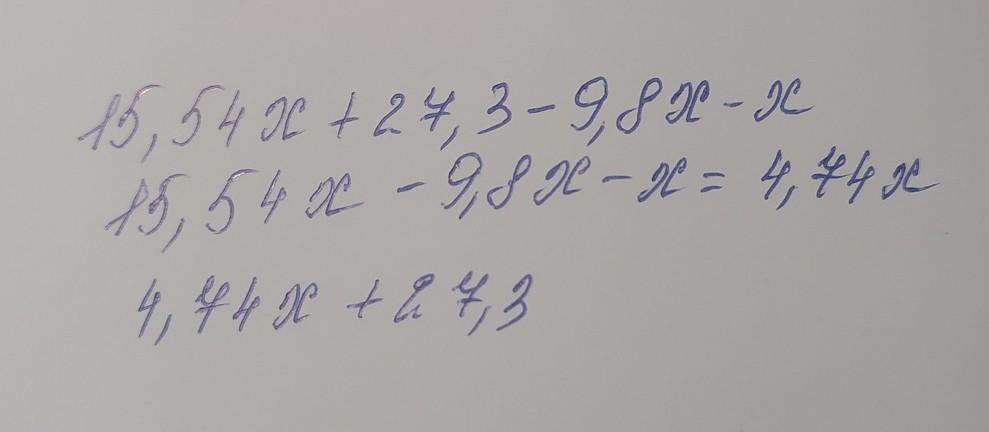 15,54x + 27,3 - 9,8x - x
15,54x - 9,8x - x = 4,74x
4,74x + 27,3